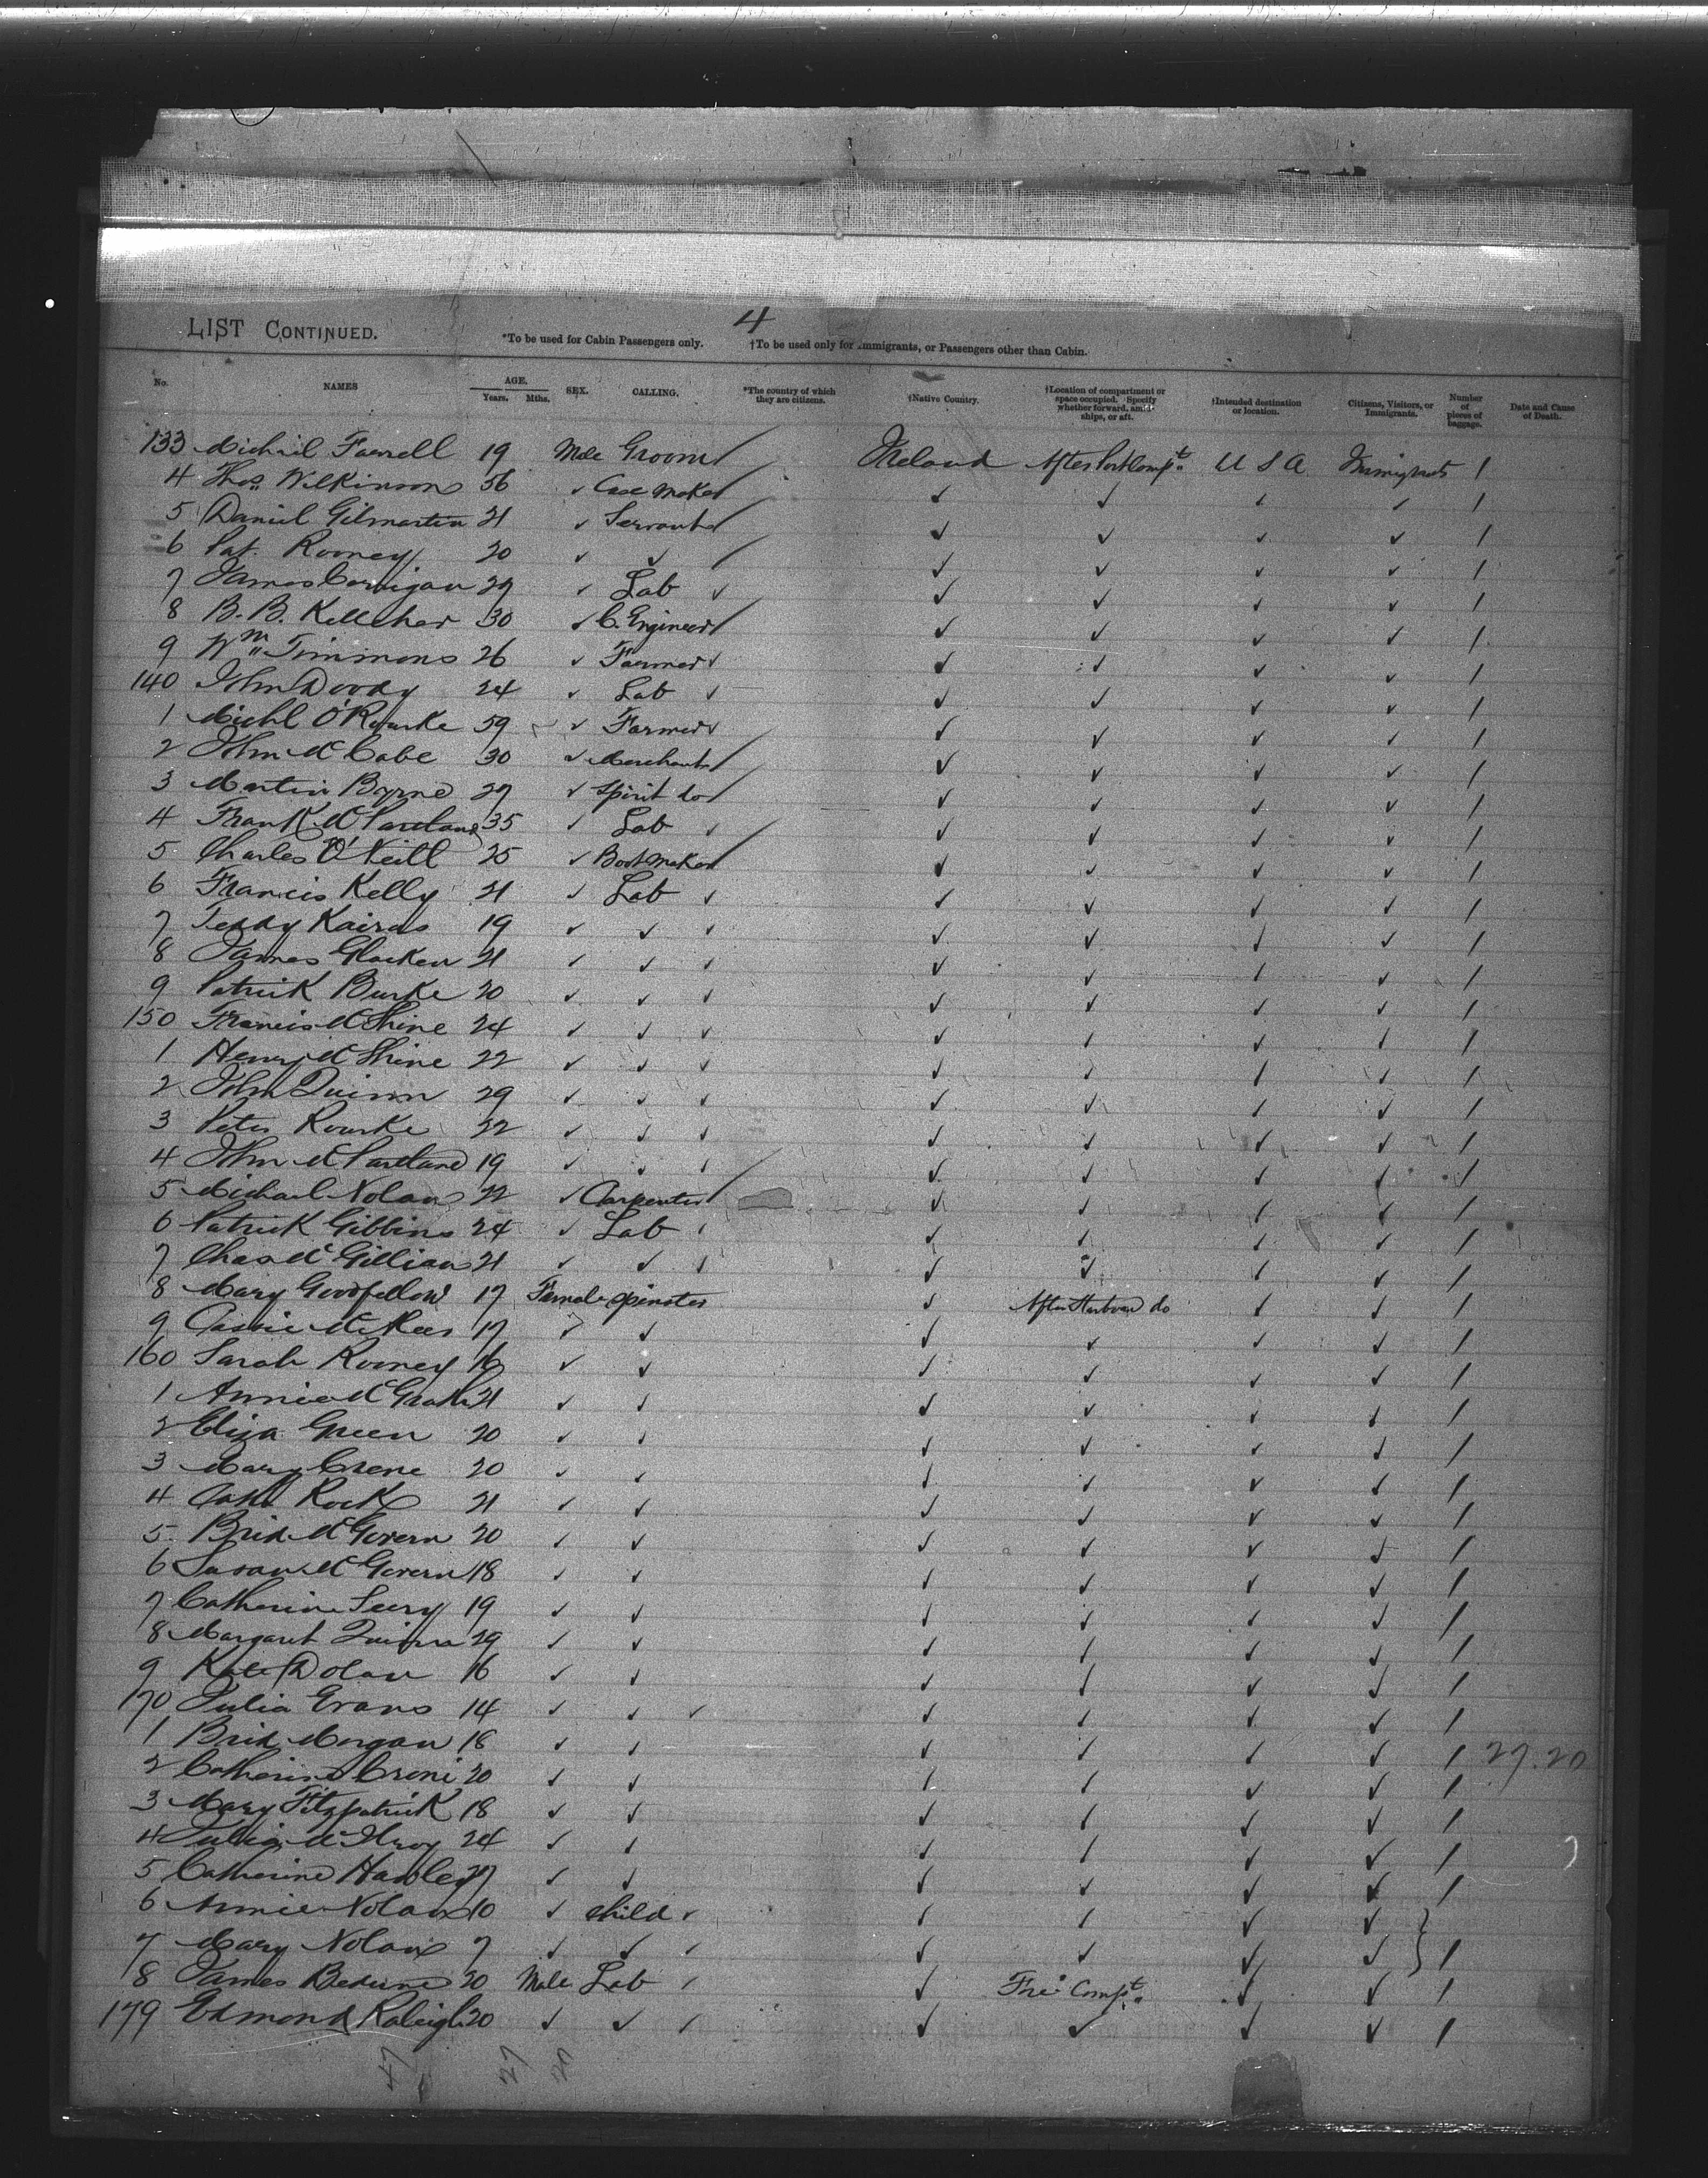 4
LIST CONTINUED.
*To be used for Cabin Passengers only. †To be used only for Immigrants, or Passengers other than Cabin.
No. NAMES AGE. Years. Mths. SEX. CALLING. *The country of which they are citizens. †Native Country. †Location of compartment or space occupied. Specify whether forward, amidships, or aft. †Intended destination or location. Citizens, Visitors, or Immigrants. Number of pieces of baggage. Date and Cause of Death.
133 Michael Farrell 19 Male Groom Ireland After Port Compt. U S A Immigrants 1
4 Thos. Wilkinson 56 ✓ Case Maker ✓ ✓ ✓ ✓ 1
5 Daniel Gilmartin 21 ✓ Servant ✓ ✓ ✓ ✓ 1
6 Pat. Rooney 20 ✓ ✓ ✓ ✓ ✓ ✓ 1
7 James Corrigan 27 ✓ Lab ✓ ✓ ✓ ✓ ✓ 1
8 B. B. Kelleher 30 ✓ C. Engineer ✓ ✓ ✓ ✓ 1
9 Wm. Timmons 26 ✓ Farmer ✓ ✓ ✓ ✓ ✓ 1
140 John Doody 24 ✓ Lab ✓ ✓ ✓ ✓ ✓ 1
1 Michl O'Rourke 59 ✓ Farmer ✓ ✓ ✓ ✓ ✓ 1
2 John McCabe 30 ✓ Merchant ✓ ✓ ✓ ✓ 1
3 Martin Byrne 27 ✓ Spirit do ✓ ✓ ✓ ✓ 1
4 Frank McPartland 35 ✓ Lab ✓ ✓ ✓ ✓ ✓ 1
5 Charles O'Neill 25 ✓ Bootmaker ✓ ✓ ✓ ✓ 1
6 Francis Kelly 21 ✓ Lab ✓ ✓ ✓ ✓ ✓ 1
7 Teddy 19 ✓ ✓ ✓ ✓ ✓ ✓ ✓ 1
8 James Glacken 21 ✓ ✓ ✓ ✓ ✓ ✓ ✓ 1
9 Patrick Burke 20 ✓ ✓ ✓ ✓ ✓ ✓ ✓ 1
150 Francis McShine 24 ✓ ✓ ✓ ✓ ✓ ✓ ✓ 1
1 Henry McShine 22 ✓ ✓ ✓ ✓ ✓ ✓ ✓ 1
2 John Quinn 29 ✓ ✓ ✓ ✓ ✓ ✓ ✓ 1
3 Peter Rourke 22 ✓ ✓ ✓ ✓ ✓ ✓ ✓ 1
4 John McPartland 19 ✓ ✓ ✓ ✓ ✓ ✓ ✓ 1
5 Michael Nolan 22 ✓ Carpenter ✓ ✓ ✓ ✓ 1
6 Patrick Gibbins 24 ✓ Lab ✓ ✓ ✓ ✓ ✓ 1
7 Chas McGillian 21 ✓ ✓ ✓ ✓ ✓ ✓ ✓ 1
8 Mary Goodfellow 17 Female Spinster ✓ After Starboard do ✓ ✓ 1
9 Cassie 17 ✓ ✓ ✓ ✓ ✓ ✓ 1
160 Sarah Rooney 16 ✓ ✓ ✓ ✓ ✓ ✓ 1
1 Annie McGrath 21 ✓ ✓ ✓ ✓ ✓ ✓ 1
2 Eliza Green 20 ✓ ✓ ✓ ✓ ✓ ✓ 1
3 Mary Crene 20 ✓ ✓ ✓ ✓ ✓ ✓ 1
4 Rock 21 ✓ ✓ ✓ ✓ ✓ ✓ 1
5 Brid McGovern 20 ✓ ✓ ✓ ✓ ✓ ✓ 1
6 Susan McGovern 18 ✓ ✓ ✓ ✓ ✓ ✓ 1
7 Catherine Seery 19 ✓ ✓ ✓ ✓ ✓ ✓ 1
8 Margaret Quinn 29 ✓ ✓ ✓ ✓ ✓ ✓ 1
9 Kate Dolan 16 ✓ ✓ ✓ ✓ ✓ ✓ 1
170 Julia Evans 14 ✓ ✓ ✓ ✓ ✓ ✓ ✓ 1
1 Brid Morgan 18 ✓ ✓ ✓ ✓ ✓ ✓ 1 27.20
2 Catherine Crone 20 ✓ ✓ ✓ ✓ ✓ ✓ 1
3 Mary Fitzpatrick 18 ✓ ✓ ✓ ✓ ✓ ✓ 1
4 Julia McIlroy 24 ✓ ✓ ✓ ✓ ✓ ✓ 1
5 Catherine Hawley 27 ✓ ✓ ✓ ✓ ✓ ✓ 1
6 Annie Nolan 10 ✓ Child ✓ ✓ ✓ ✓ ✓
7 Mary Nolan 7 ✓ ✓ ✓ ✓ ✓ ✓ ✓ 1
8 James 20 Male Lab ✓ ✓ Fre Compt. ✓ ✓ 1
179 Edmond Raleigh 20 ✓ ✓ ✓ ✓ ✓ ✓ ✓ 1
47 27 20